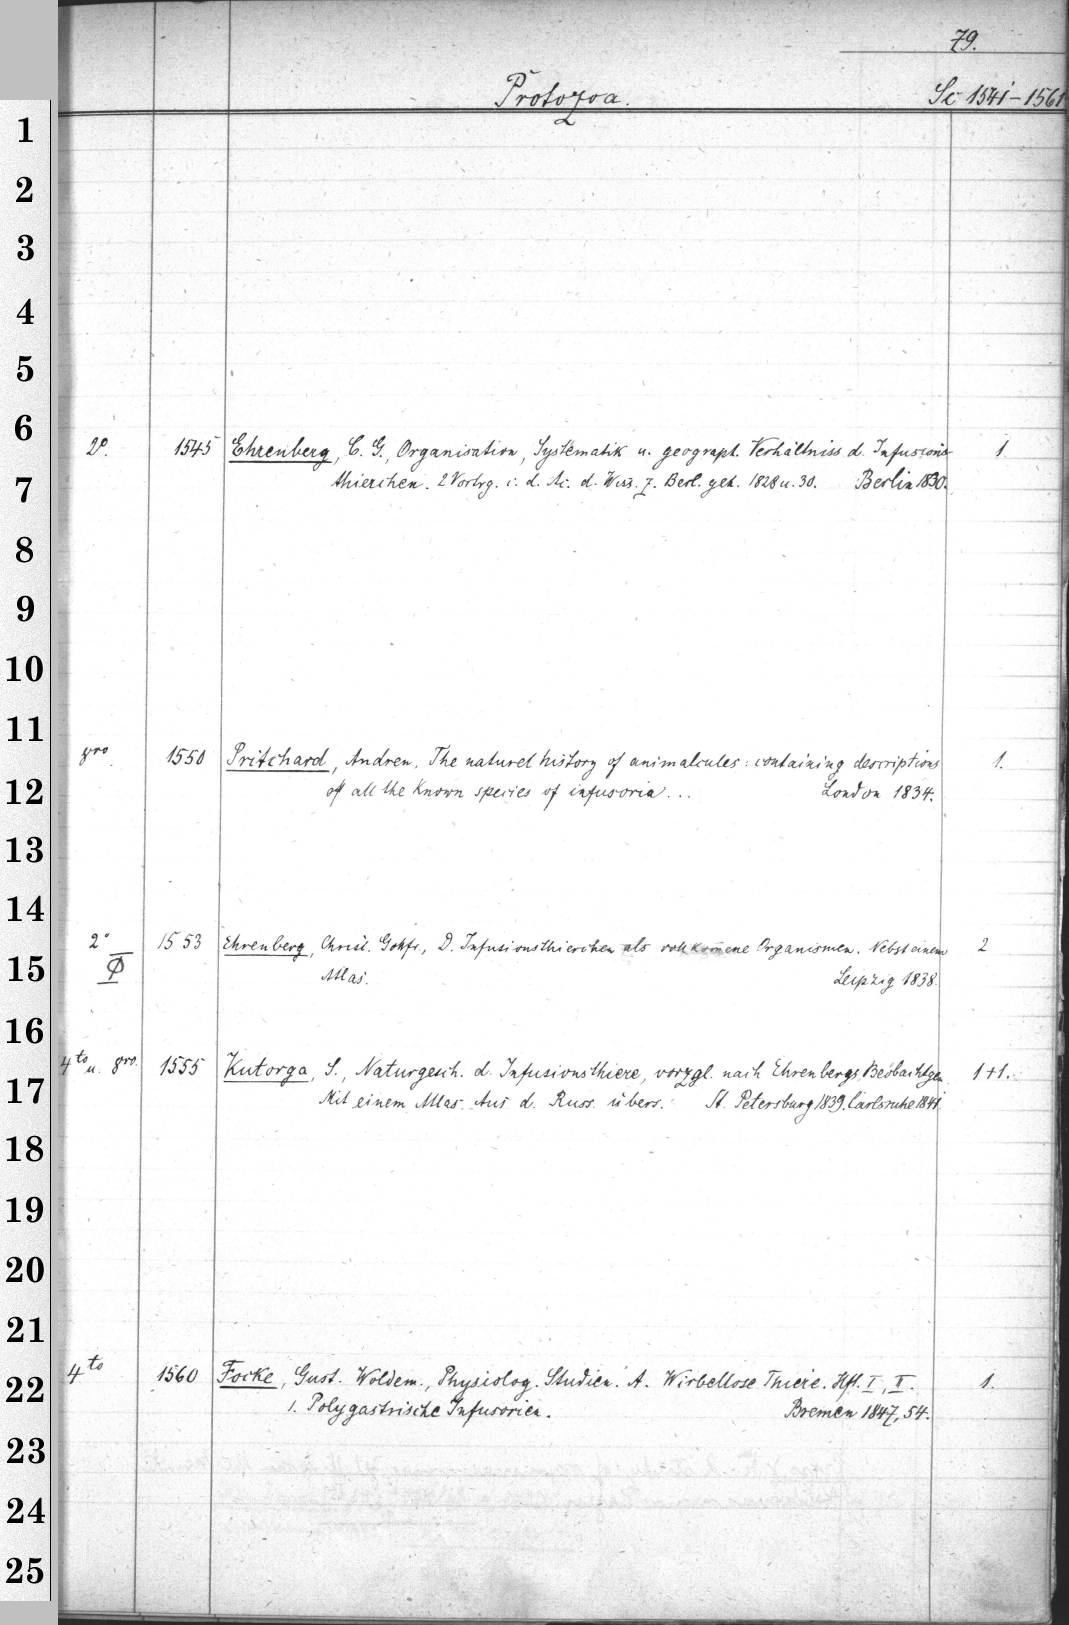 79.
Protozoa. Sc 1541-1561
1
2
3
4
5
6
2º. 1545 Ehrenberg, C. G., Organisation, Systematik u. geograph. Verhältniss d. Infusions-
7 thierchen. 2 Vortrg. i. d. Ac. d. Wiss. z. Berl. geh. 1828 u. 30. Berlin 1830. 1.
8
9
10
11
8vo. 1550 Pritchard, Andrew, The naturel history of animalcules: containing descriptions 1.
12 of all the known species of infusoria... London 1834.
13
14
2º 1553 Ehrenberg, Christ. Gottfr., D. Infusionsthierchen als vollkom̅ene Organismen. Nebst einem 2
15 Φ Atlas. Leipzig 1838.
16
4to u. 8vo. 1555 Kutorga, S., Naturgesch. d. Infusionsthiere, vorzgl. nach Ehrenbergs Beobachtgen 1+1.
17 Mit einem Atlas. Aus d. Russ. übers. St. Petersburg 1839. Carlsruhe 1841.
18
19
20
21
4to 1560 Focke, Gust. Woldem., Physiolog. Studien. A. Wirbellose Thiere. Hft. I, II. 1.
22 1. Polygastrische Infusorien. Bremen 1847, 54.
23
24
25